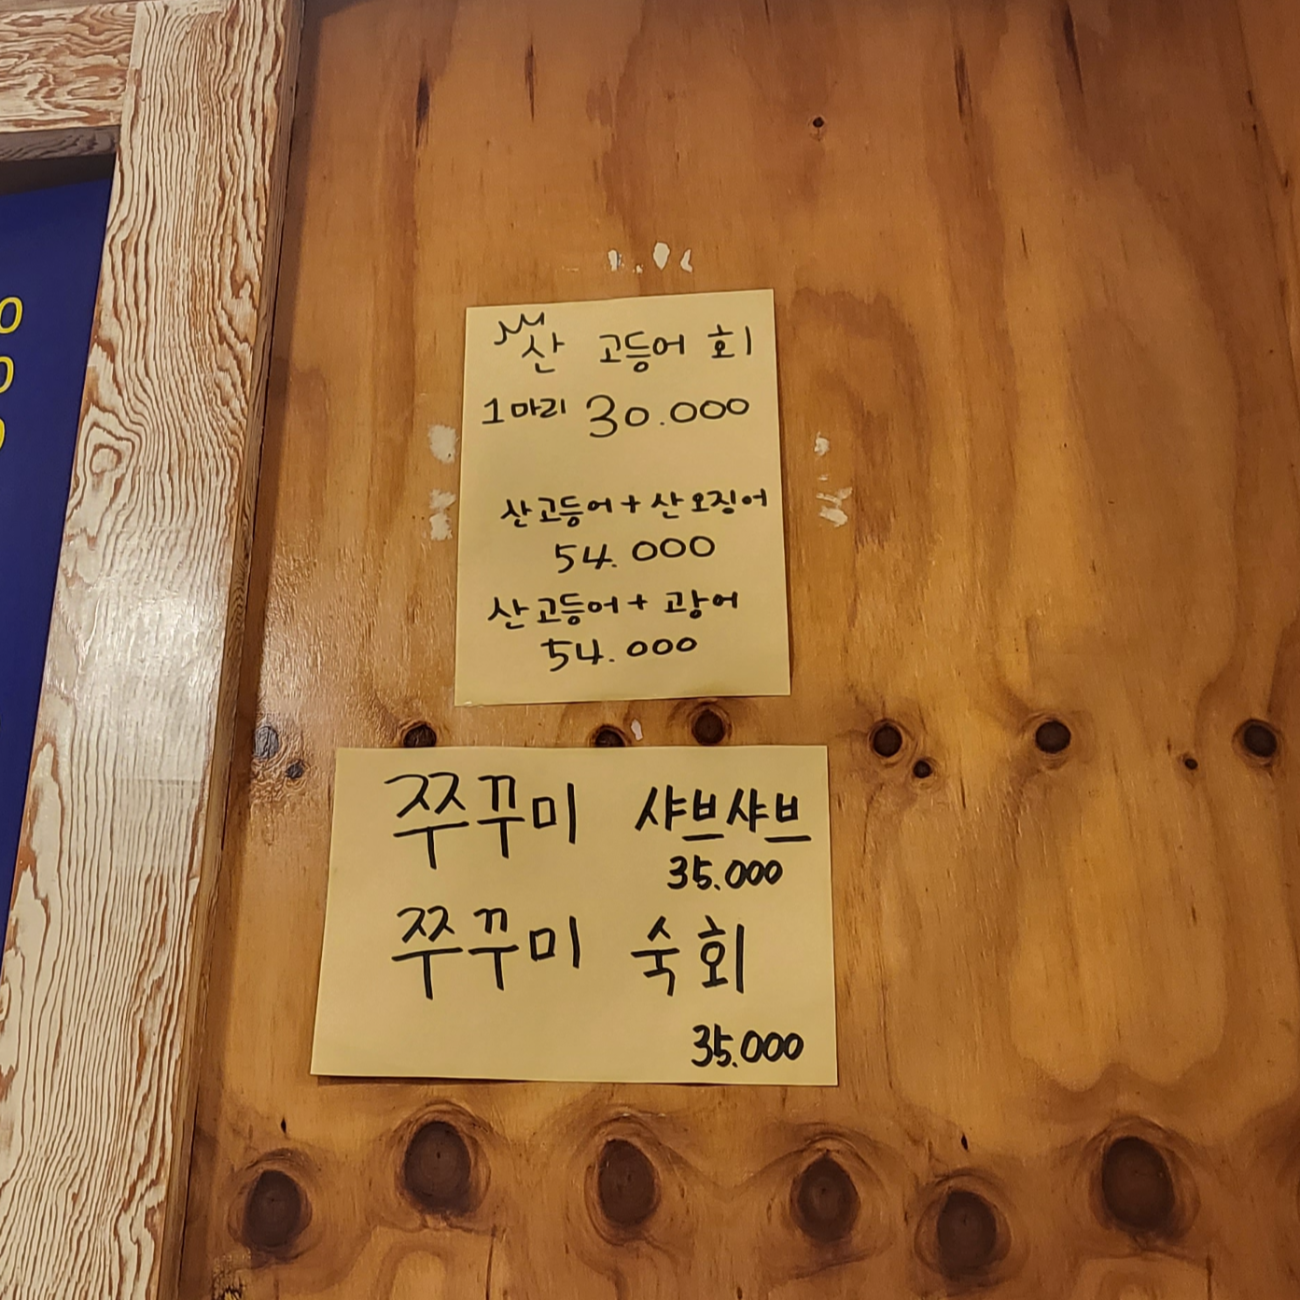 산 고등어 회
1마리 30.000
산고등어+산오징어
54.000
산고등어+광어
54.000
쭈꾸미 샤브샤브
35.000
쭈꾸미 숙회
35.000